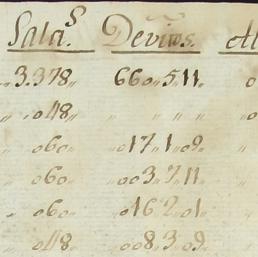 Sala.s Devitos.
3.378,, 660,,5,,11,,
,,048,, ,, ,, ,,
,,060,, ,,017,,1,,09,,
,,060,, ,,003,,7,,11,,
,,060,, ,,016,,2,,01,,
,,048,, ,,008,,3,,09,,